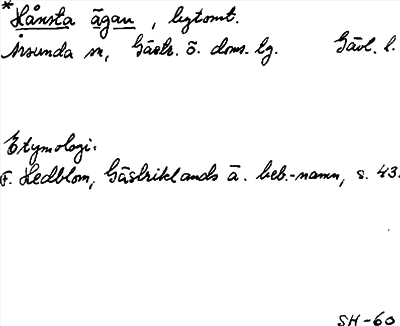 *Hånsta ägan, lzgtomt.
Årsunda sn, Gästr. ö. doms. lg. Gävl. l.
Etymologi.
F. Hedblom, Gästriklands ä. beb.-namn, s. 43.
SH-60